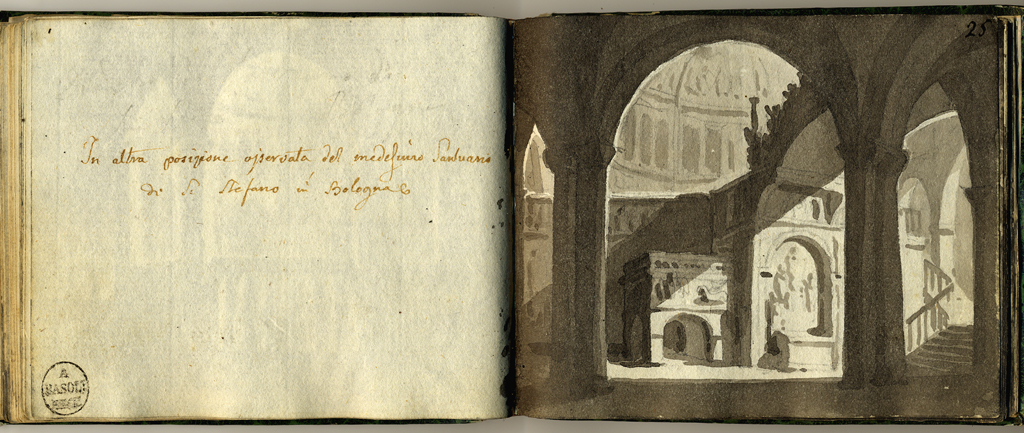 In altra posizione osservata del medesimo Santuario
di S. Stefano in Bologna
A
BASOLI
25